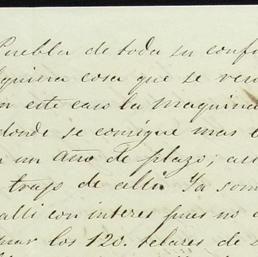 Puebla de toda su conf
quiera cosa que se ven
en este caso la maquina
donde se consigue mas b
un año de plazo; asi
trajo de alli. Ya som
alli con interes pues no
los 120. telares de